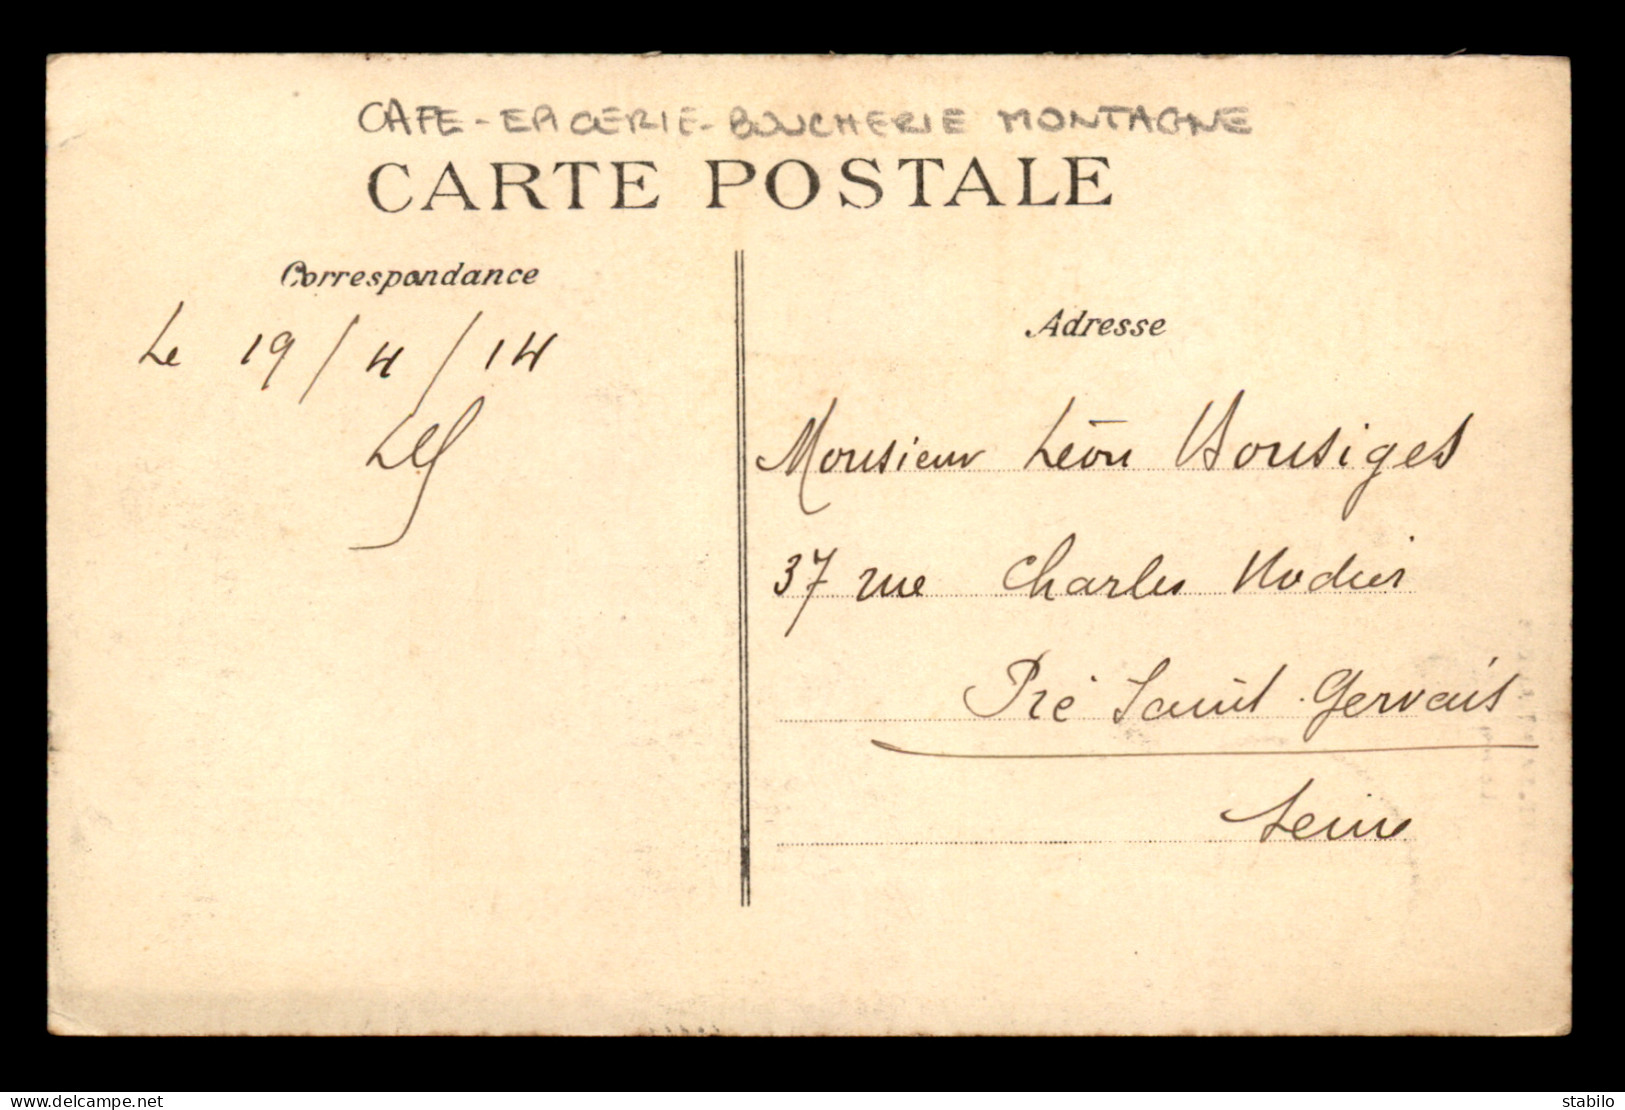 CAFE - EPICERIE - BOUCHERIE MONTAGNE
CARTE POSTALE
Correspondance
Le 19/4/14
Adresse
Monsieur Léon
37 rue Charles Nodier
Pré Saint Gervais
Seine
delcampe.net
stabilo